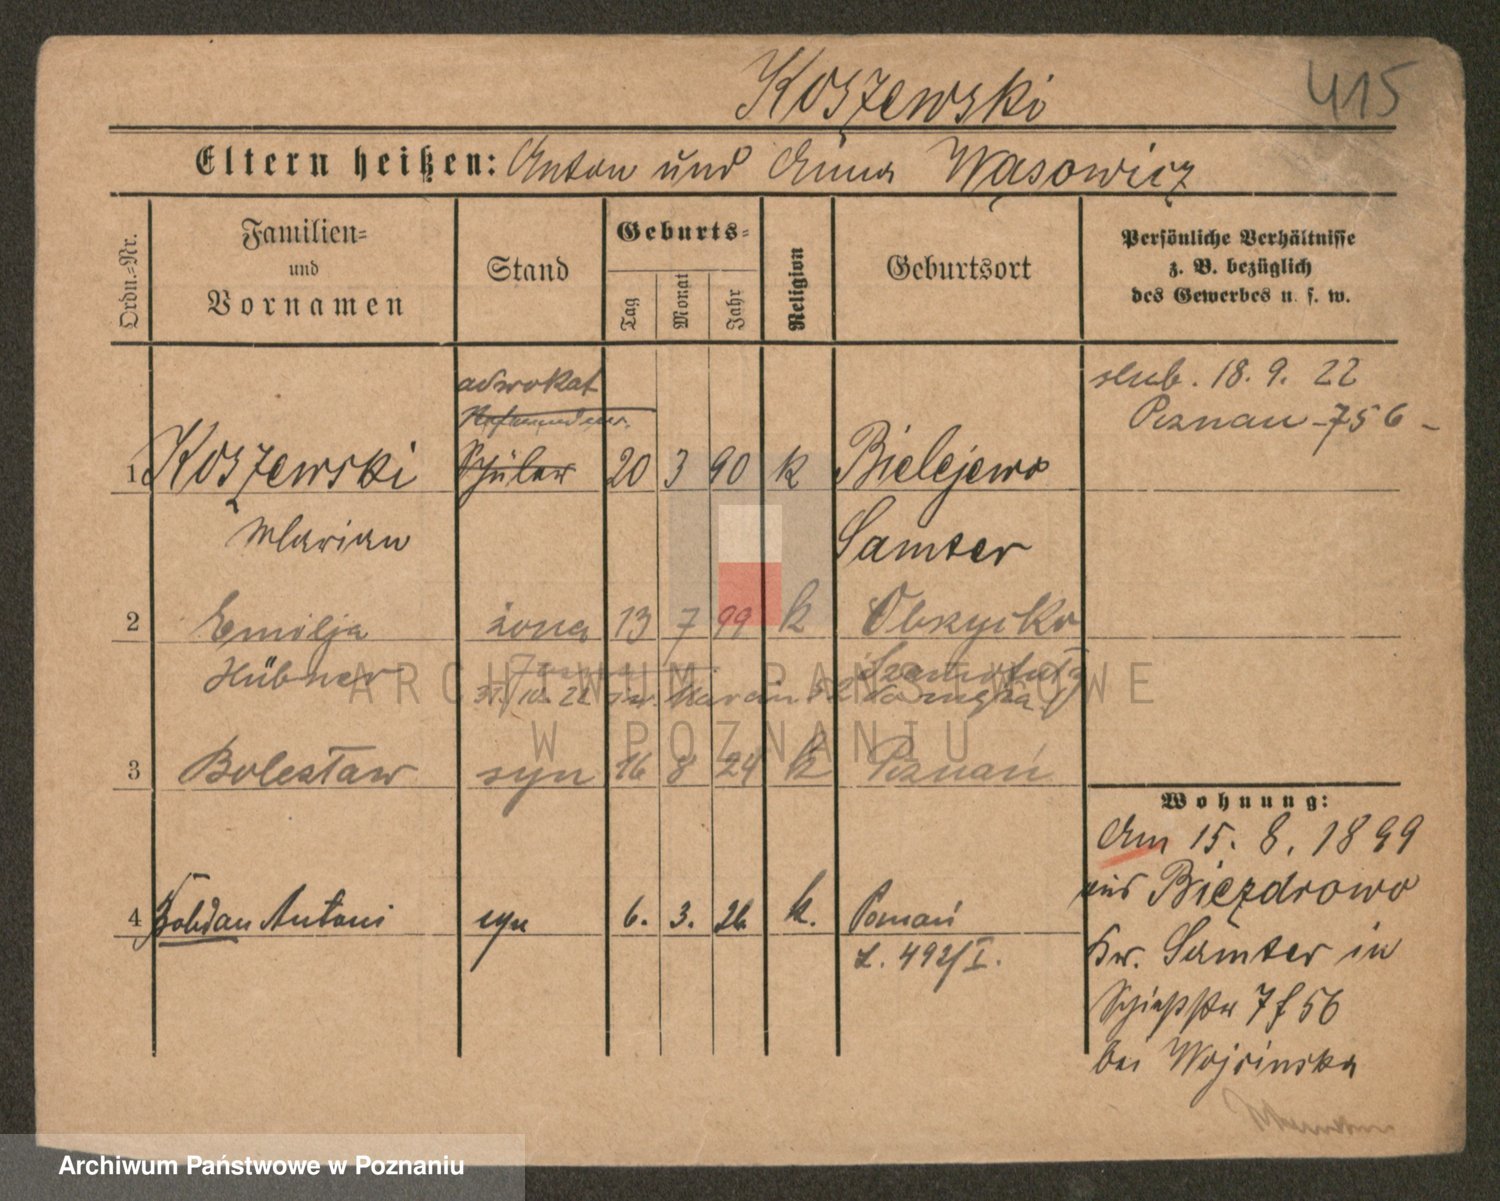 Koszewski 415
Eltern heißen: Anton und Anna Wąsowicz
Ordn.-Nr.
Familien-
und
Vornamen
Stand
Geburts-
Tag
Monat
Jahr
Religion
Geburtsort
Persönliche Verhältnisse
z. B. bezüglich
des Gewerbes u. s. w.
adwokat
ślub. 18. 9. 22
Poznań -756-
1 Koszewski Schüler 20 3 90 k Bielejewo
Marian Samter
2 Emilja żona 13 7 99 k Obrzycko
Hübner
31. 10. 22 św. Marcin
3 Bolesław syn 16 8 24 k Poznań
4 Bohdan Antoni syn 6. 3. 26 k. Poznań
L. 492/I.
Wohnung:
Am 15. 8. 1899
aus Biezdrowo
Kr. Samter in
Schießstr 7 f 56
bei Wojcinska
ARCHIWUM PAŃSTWOWE
W POZNANIU
Archiwum Państwowe w Poznaniu